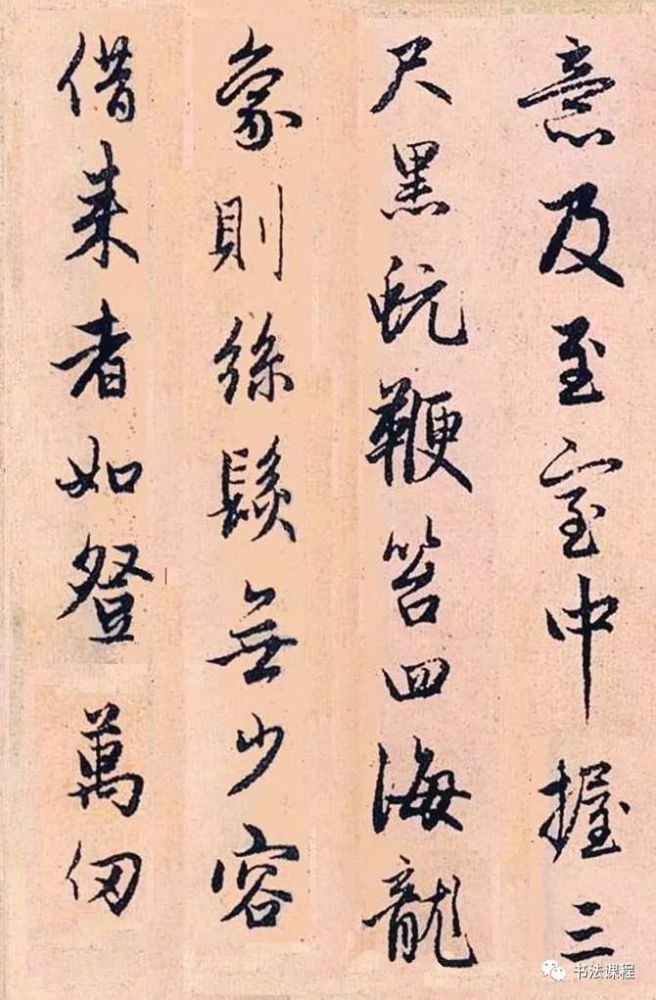 意及至室中握三
尺黑蚖鞭笞四海龍
象則絲鬆無少容
借来者如登萬仞
书法课程